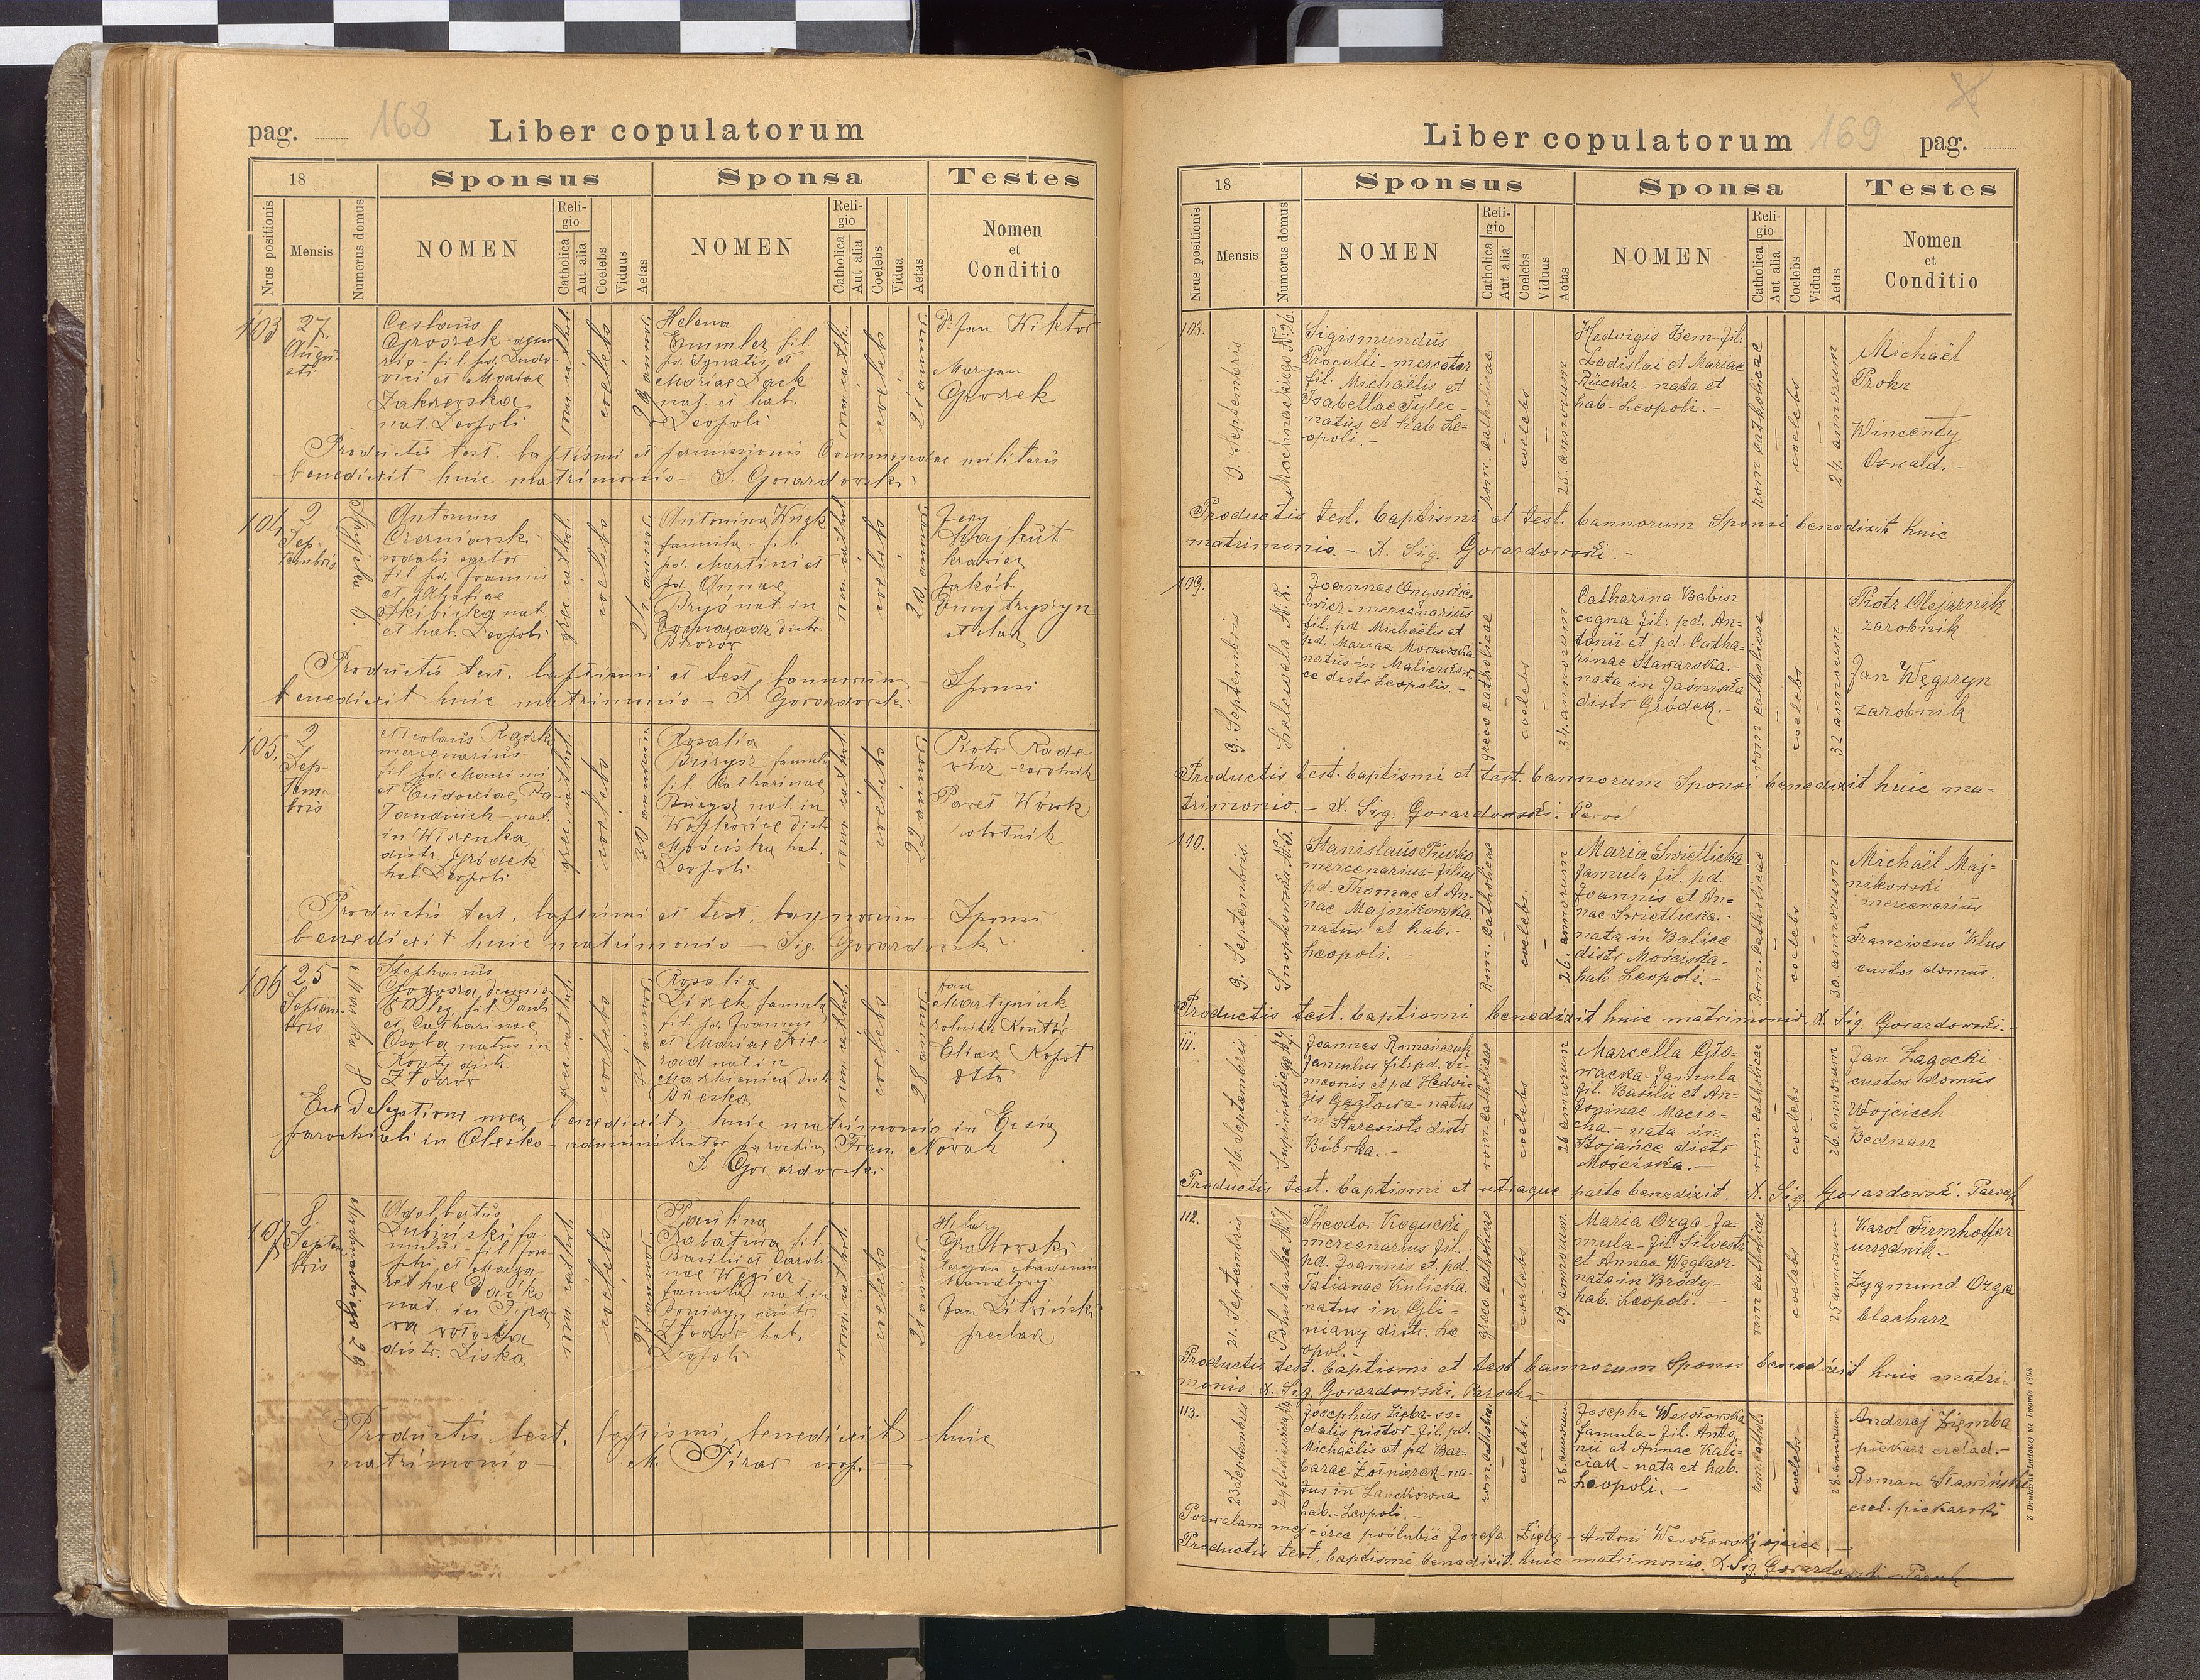 pag. 168 Liber copulatorum
18 Sponsus Sponsa Testes
Nrus positionis Mensis Numerus domus NOMEN Religio Catholica Aut alia Coelebs Viduus Aetas NOMEN Religio Catholica Aut alia Coelebs Vidua Aetas Nomen et Conditio
103
27
Augu-
sti
Ceslaus
Grossek
fil. pd. Ludo-
vici et Mariae
Zakrzewska
nat. Leopoli
rom. cathol.
coelebs
Helena
Emmler fil.
pd. Ignatii et
Mariae
nat. et hab.
Leopoli
rom. cath.
coelebs
Dr. Jan Wiktor
Maryan
Productis test. baptismi et permissioni Commendae militaris
benedixit huic matrimonio - S. Gorazdowski
104
2
Sep-
tembris
Antonius
Czerniawski
sodalis sartor
fil. pd. Joannis
et
Skibicka nat.
et hab. Leopoli
grec. cathol.
coelebs
Antonina
famula - fil.
pd. Martini et
pd. Annae
Bryś nat. in
distr.
rom. cathol.
coelebs
Jerzy
Wajhut
krawiec
Jakób
Dmytryszyn
stolarz
Productis test. baptismi et test. bannorum Sponsi
benedixit huic matrimonio - S. Gorazdowski
105.
2
Sep-
tem-
bris
Nicolaus
mercenarius
fil. pd. Maximi
et Eudoxiae
nat.
in Wiszenka
distr. Gródek
hab. Leopoli
grec. cathol.
coelebs
Rosalia
Burysz - famula
fil. Catharinae
Burysz nat. in
Wojkowice distr.
Mościska hab.
Leopoli
rom. cathol.
coelebs
Piotr Rade-
wicz - zarobnik
Paweł Wowk
robotnik
Productis test. baptismi et test. bannorum Sponsi
benedixit huic matrimonio - Sig. Gorazdowski
106
25
Septem-
bris
Stephanus
fil. Pauli
et Catharinae
Osoba natus in
Konty distr.
Złoczów
grec. cathol.
coelebs
Rosalia
Lisek famula
fil. pd. Joannis
et Mariae
nat. in
distr.
rom. cathol.
coelebs
Jan
Martyniuk
rolnik Kontów
Eliasz
Ex delegatione mea benedixit huic matrimonio in Ecclesia
parochiali in Olesko - administrator parochiae Fran. Nowak
S. Gorazdowski
107
8
Septem-
bris
Mochnackiego 29
Adalbertus
Lubiński fa-
mulus - fil. Jose-
phi et Marga-
rethae
nat. in
distr. Liska
rom. cathol.
coelebs
Paulina
fil.
Basilii et Caroli-
nae Węgier
famula nat. in
distr.
Złoczów hab.
Leopoli
rom. cathol.
coelebs
Hilary
Grabowski
Jan
Productis test. baptismi, benedixit huic
matrimonio - M. coop.
Liber copulatorum 169 pag.
18 Sponsus Sponsa Testes
Nrus positionis Mensis Numerus domus NOMEN Religio Catholica Aut alia Coelebs Viduus Aetas NOMEN Religio Catholica Aut alia Coelebs Vidua Aetas Nomen et Conditio
108.
9. Septembris
Mochnackiego N. 26.
Sigismundus
Procelli - mercator
fil. Michaëlis et
Isabellae Tylec -
natus et hab Le=
opoli. -
rom. catholicae
coelebs
25. annorum
Hedvigis Bem - fil:
Ladislai et Mariae
Rücker - nata et
hab - Leopoli. -
rom catholicae
coelebs
24. annorum
Michaël
Prohn
Wincenty
Oswald. -
Productis test. baptismi et test. bannorum Sponsi benedixit huic
matrimonio. - X. Sig. Gorazdowski. -
109.
9. Septembris
N. 8.
Joannes Onyszkie-
wicz - mercenarius
fil: pd Michaëlis et
pd. Mariae Morawska
natus in Maliczkow-
ce distr Leopolis. -
greco catholicae
coelebs
34. annorum
Catharina Babisz
cogna fil: pd. An-
tonii et pd. Catha-
rinae Stawarska. -
nata in Jaśniska
distr Gródek. -
rom catholicae
coelebs
32. annorum
Piotr Olejarnik
zarobnik
Jan Węgrzyn
zarobnik
Productis test. baptismi et test. bannorum Sponsi benedixit huic ma=
trimonio. - X. Sig. Gorazdowski - Paroch
110.
9. Septembris.
Snopkowska N. 5.
Stanislaus Piwko
mercenarius - filius
pd. Thomae et An-
nae Majnikowska
natus et hab. -
Leopoli. -
Rom. catholicae
coelebs.
26. annorum
Maria Swietlicka
famula fil. pd.
Joannis et An-
nae Swietlicka. -
nata in Balice
distr Mościska -
hab Leopoli. -
Rom. catholicae
coelebs
30. annorum
Michaël Maj-
nikowski
mercenarius
Franciscus Klus
custos domus.
Productis test. baptismi benedixit huic matrimonio. X. Sig. Gorazdowski. -
111.
16. Septembris
Supińskiego
Joannes Romańczuk
famulus fil: pd. Si-
meonis et pd Hedvi-
gis Gęgława - natus
in Staresioło distr
Bóbrka. -
rom. catholicae
coelebs
26 annorum
Marcella Gło-
wacka - famula
fil. Basilii et An-
toninae Macio-
cha. - nata in
Stojańce distr
Mościska. -
rom. catholicae
coelebs
26. annorum
Jan Zagocki
custos domus
Wojciech
Bednarz
Productis test. baptismi et utraque parte benedixit. X. Sig. Gorazdowski. Paroch
112.
21. Septembris
Pohulanka N. 1.
Theodor Kogucki
mercenarius fil.
pd. Joannis et. pd.
Tatianae Kulicka.
natus in Gli-
niany distr. Le
opol. -
greco catholicae
coelebs
29. annorum
Maria Ozga - fa-
mula - fil. Silvestri
et Annae Węglarz
nata in Brody -
hab. Leopoli. -
rom catholicae
coelebs
25 annorum
Karol Firmhoffer
urzędnik -
Zygmund Ozga
blacharz
Productis test. baptismi et test bannorum Sponsi benedixit huic matri-
monio. X. Sig. Gorazdowski, Paroch. -
113.
23 Septembris
Josephus Zięba - so=
dalis pistor - fil. pd.
Michaëlis et pd Bar-
barae Żołnierek - na-
tus in Lanckorona
hab. - Leopoli. -
rom catholic.
coelebs.
28. annorum
Josepha Wesołowska
famula - fil. Anto-
nii et Annae Kali-
ciak - nata et hab.
Leopoli. -
rom. cathol.
coelebs -
28 annorum
Andrzej Ziemba
piekarz czelad. -
Roman Sławiński
czel. piekarski
Pozwalam mej córce poślubić Józefa Ziębę - Antoni Wesołowski ojciec. -
Productis test. baptismi benedixit huic matrimonio. X. Sig. Gorazdowski - Paroch
Z Drukarni Ludowej we Lwowie 1898